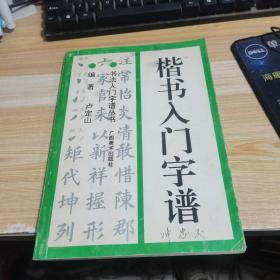 楷书入门字谱
书法入门字谱丛书
编著 卢定山
广西美术出版社
常怡炎清敢惜陳郡
六家官來以新祥握形
矩代坤列
DELL